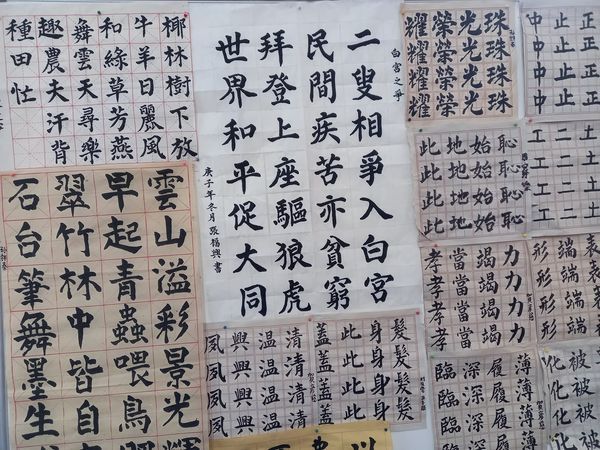 椰林樹下放
牛羊日麗風
和綠草芳燕
舞雲天尋樂
趣農夫汗背
種田忙
白宮之爭
二叟相爭入白宮
民間疾苦亦貧窮
拜登上座驅狼虎
世界和平促大同
庚子年冬月
珠珠珠珠
光光光光
榮榮榮榮
耀耀耀耀
正正正正
止止止止
中中中中
雲山溢彩景光輝
早起青蟲喂鳥
翠竹林中皆自
石台筆舞墨生
恥恥恥恥
始始始始
地地地地
此此此此
土土土土
二二二二
工工工工
力力力力
竭竭竭竭
當當當當
孝孝孝孝
端端端端
形形形形
髮髮髮髮
身身身身
此此此此
蓋蓋蓋蓋
清清清清
温温温温
興興興興
夙夙夙夙
薄薄薄
履履履
深深深
臨臨臨
被被被
化化化